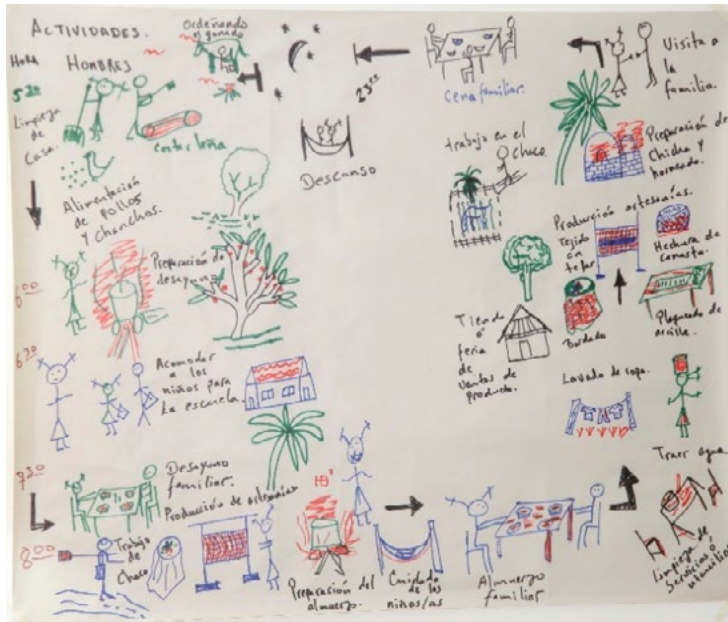 ACTIVIDADES.
Hora
HOMBRES
5:30
Limpieza
de
Casa.
Ordeñando
el ganado
cortar leña
Alimentación
de pollos
y chanchos.
6:00
Preparación de
desayuno
6:30
Acomodar
a los
niños para
La escuela.
7:30
Desayuno
familiar.
8:00
Trabajo
de
Chaco
Producción de artesanías
Preparación del
almuerzo.
Cuidado
de los
niños/as
Almuerzo
familiar
Limpieza de
servicios ó
utensilios
Traer agua.
Lavado de ropa.
Producción artesanías.
Tejido
en
telar
Hechura de
canasta.
Bordado
Plaqueado de
arcilla.
Tienda
ó
feria
de
ventas de
producto.
trabajo en el
chaco
Preparación de
Chicha y
horneado.
Visita a
la
familia.
Cena familiar.
23:00
Descanso